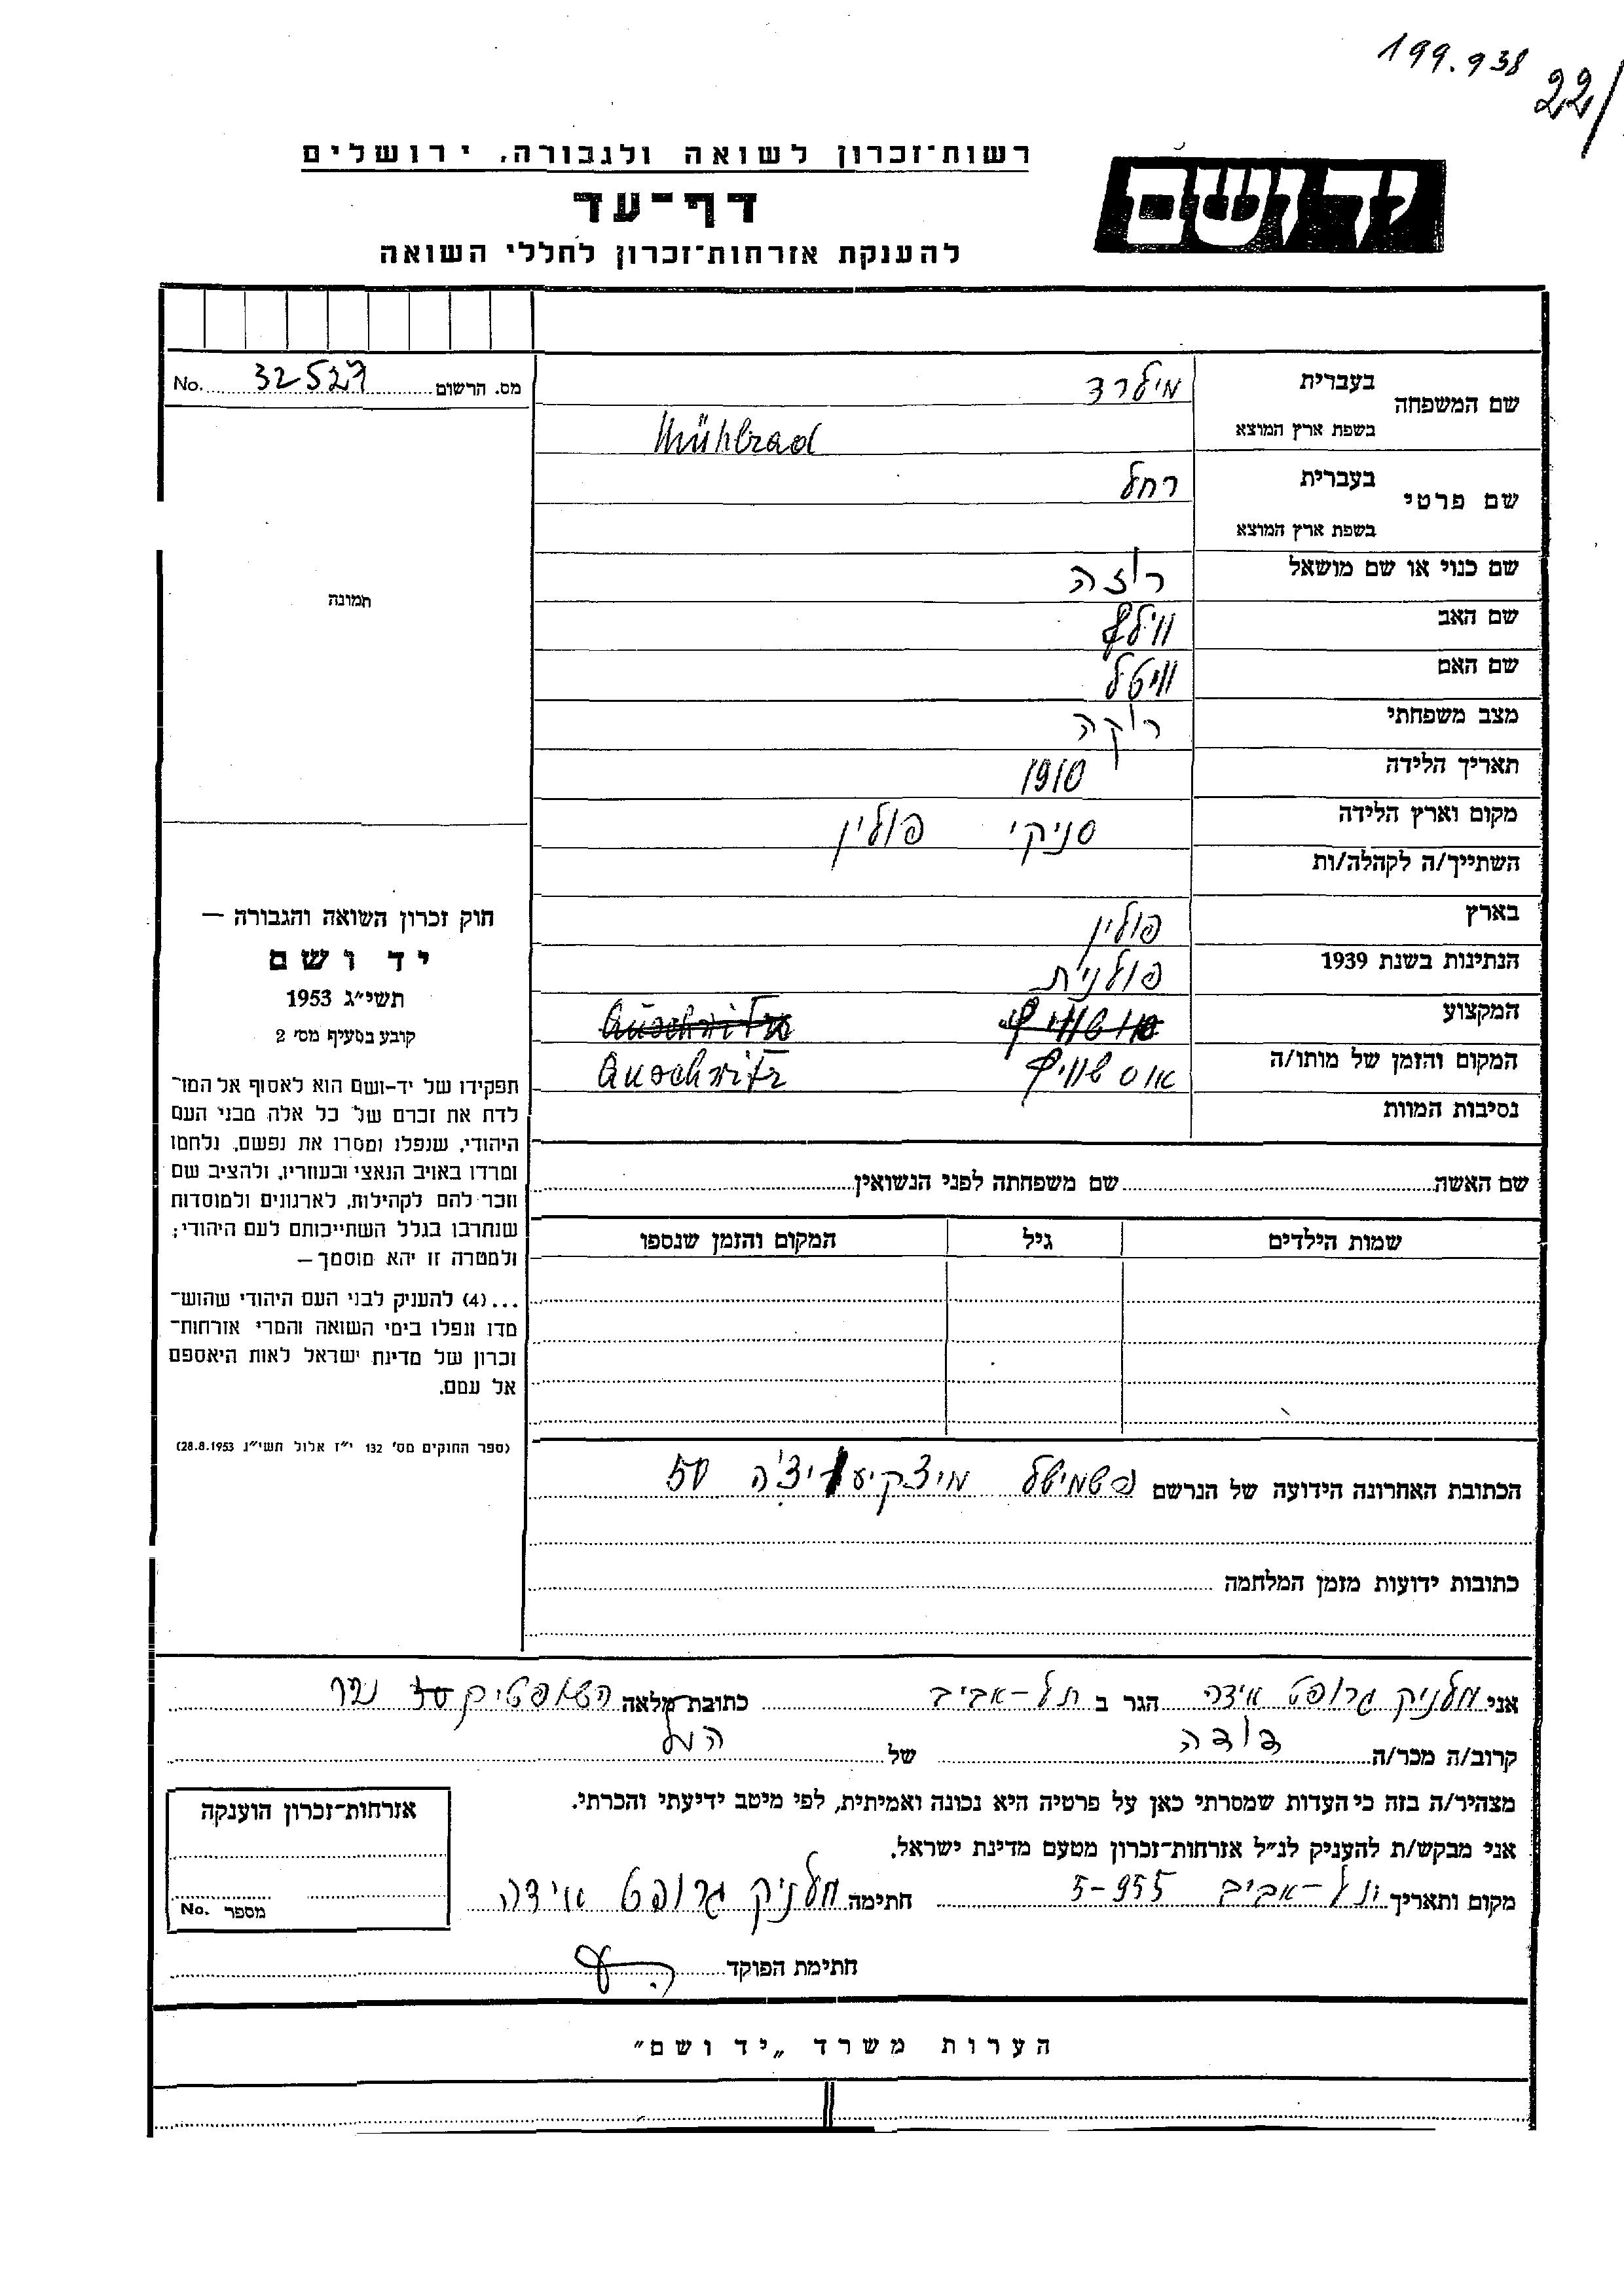 199.938
22/
רשות־זכרון לשואה ולגבורה, ירושלים
יד ושם
דף־עד
להענקת אזרחות־זכרון לחללי השואה
מס. הרשום 32527 No.
שם המשפחה
בעברית מילרד
בשפת ארץ המוצא Mühlrad
שם פרטי
בעברית רחל
בשפת ארץ המוצא
שם כנוי או שם מושאל רוזה
שם האב ווילף
שם האם וויטל
מצב משפחתי רוקה
תאריך הלידה 1910
מקום וארץ הלידה סניקי פולין
השתייך/ה לקהלה/ות
בארץ פולין
הנתינות בשנת 1939 פולנית
המקצוע
המקום והזמן של מותו/ה אושוויץ Auschwitz
נסיבות המוות
שם האשה שם משפחתה לפני הנשואין
שמות הילדים גיל המקום והזמן שנספו
הכתובת האחרונה הידועה של הנרשם פשמישל מיצקיעויצ'ה 50
כתובות ידועות מזמן המלחמה
תמונה
חוק זכרון השואה והגבורה —
יד ושם
תשי״ג 1953
קובע בסעיף מס׳ 2
תפקידו של יד-ושם הוא לאסוף אל המו־
לדת את זכרם של כל אלה מבני העם
היהודי, שנפלו ומסרו את נפשם, נלחמו
ומרדו באויב הנאצי ובעוזריו, ולהציב שם
וזכר להם לקהילות, לארגונים ולמוסדות
שנחרבו בגלל השתייכותם לעם היהודי;
ולמטרה זו יהא מוסמך —
...(4) להענק לבני העם היהודי שהוש־
מדו ונפלו בימי השואה והמרי אזרחות־
זכרון של מדינת ישראל לאות היאספם
אל עמם.
(ספר החוקים מס׳ 132 י״ז אלול תשי״ג 28.8.1953)
אני גרופט אידה הגר ב תל-אביב כתובת מלאה השופטים
קרוב/ה מכר/ה דודה של הנ"ל
מצהיר/ה בזה כי העדות שמסרתי כאן על פרטיה היא נכונה ואמיתית, לפי מיטב ידיעתי והכרתי.
אני מבקש/ת להעניק לנ״ל אזרחות־זכרון מטעם מדינת ישראל.
מקום ותאריך תל-אביב 5-955 חתימה גרופט אידה
חתימת הפוקד
אזרחות־זכרון הוענקה
מספר No.
הערות משרד „יד ושם״